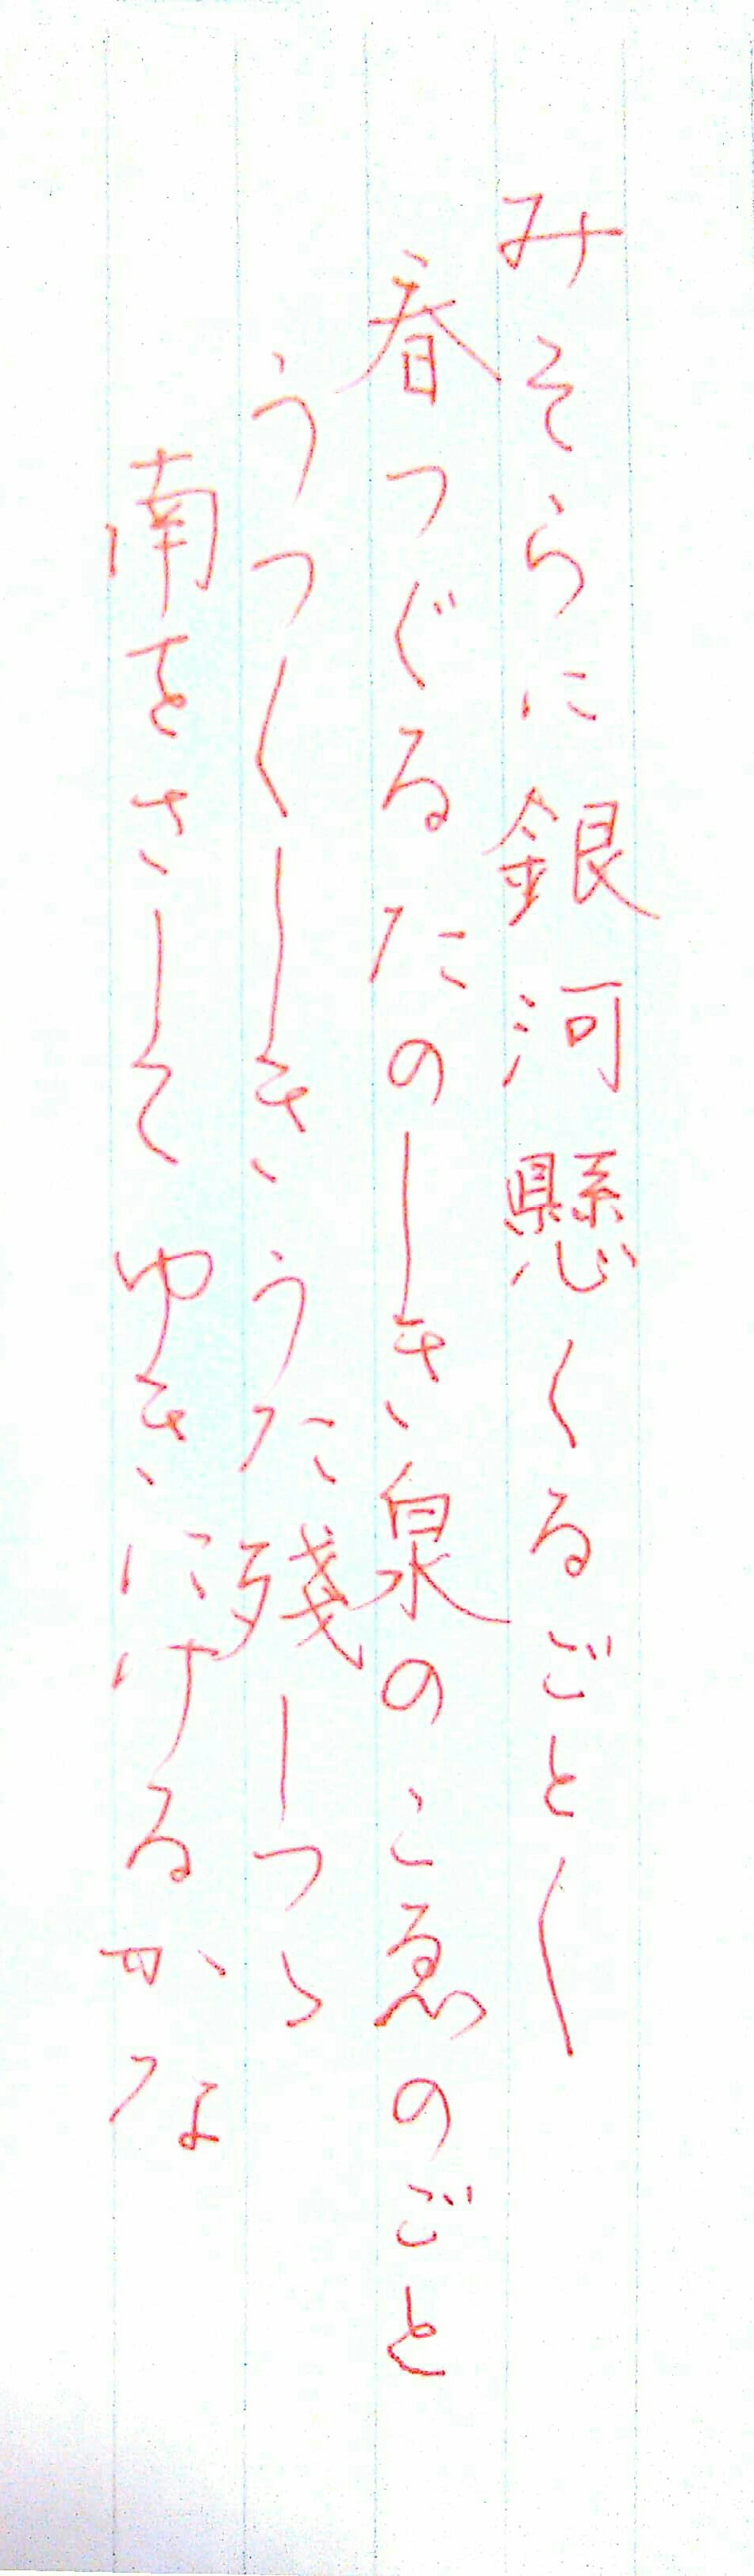 みそらに銀河懸くるごとく
春つぐるたのしき泉のこゑのごと
うつくしきうた残しつゝ
南をさしてゆきにけるかな